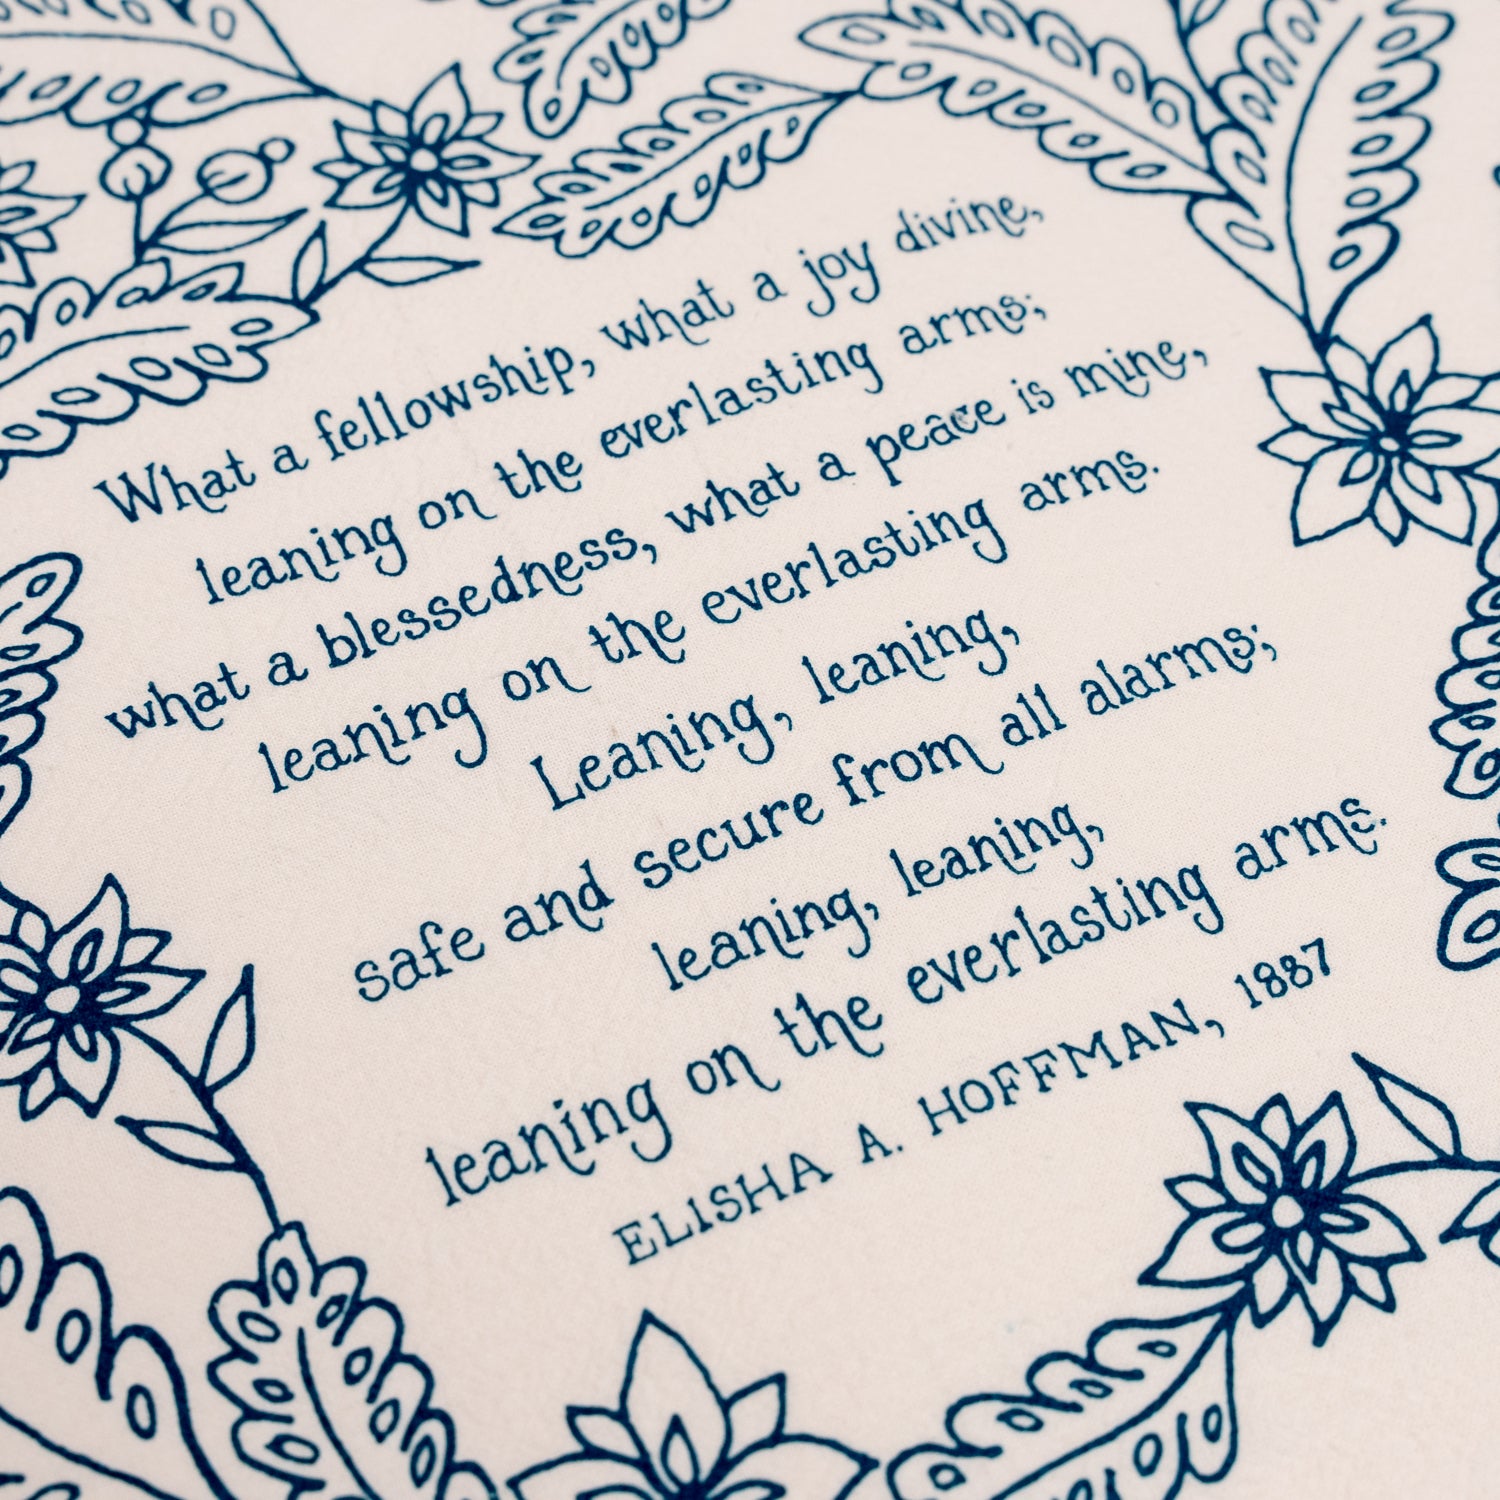 What a fellowship, what a joy divine,
leaning on the everlasting arms;
what a blessedness, what a peace is mine,
leaning on the everlasting arms.
Leaning, leaning,
safe and secure from all alarms;
leaning, leaning,
leaning on the everlasting arms.
ELISHA A. HOFFMAN, 1887